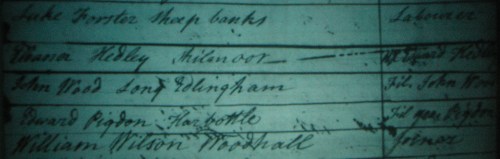 Luke Forster Sheep banks Labourer
Eleanor Hedley Shilmoor Edward Hedley
John Wood Long Edlingham Fil John Wood
Edward Pigdon Harbottle Fil Pigdon
William Wilson Woodhall joiner